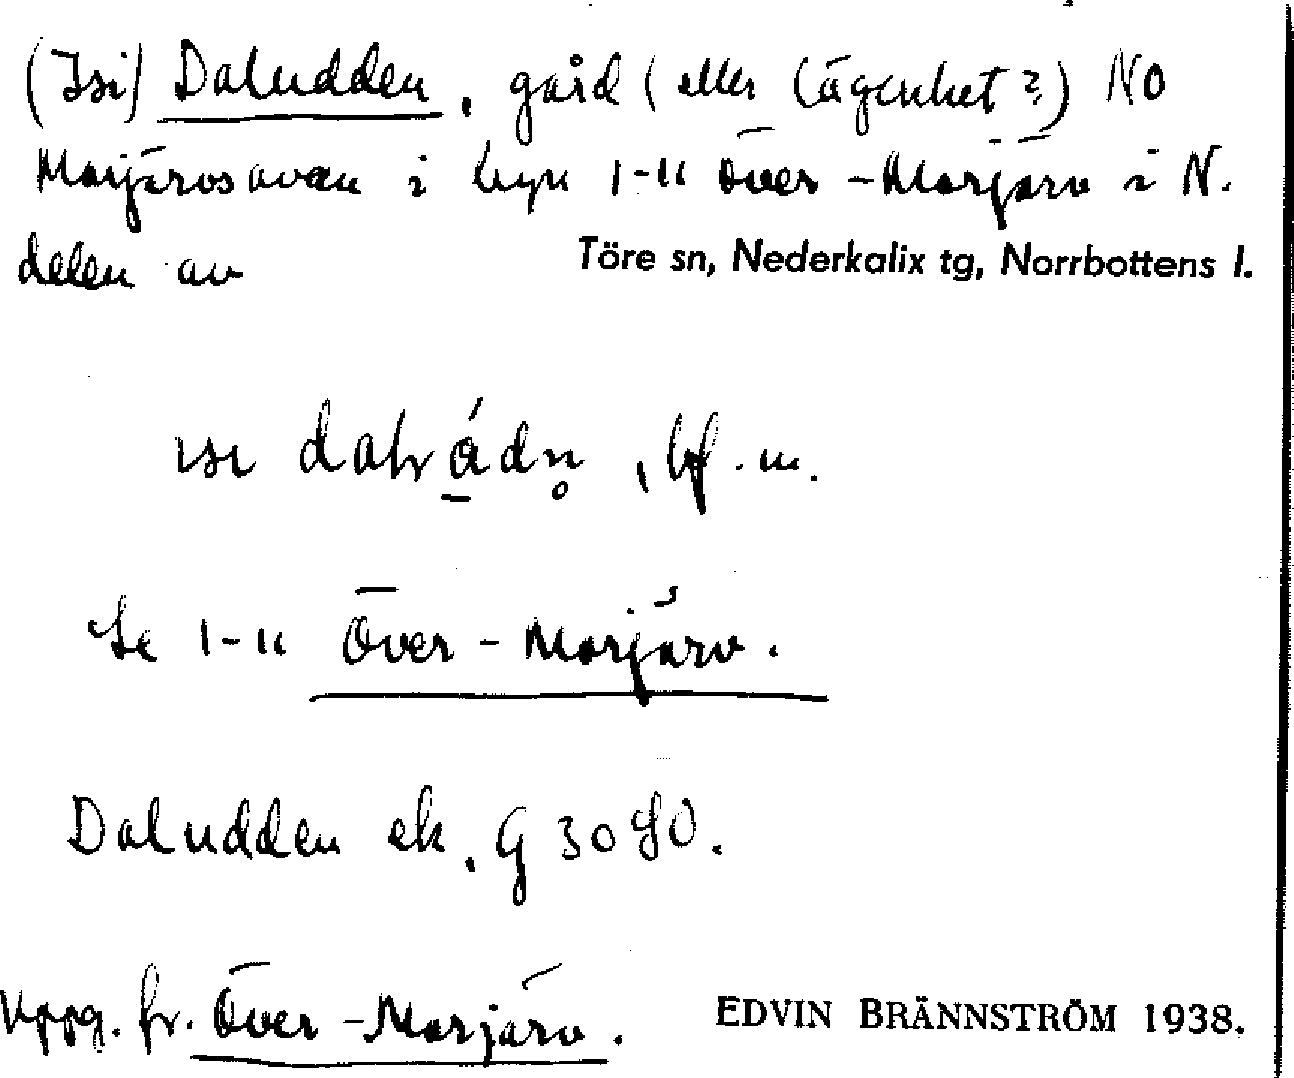 (Isi) Daludden, gård (eller lägenhet?) NO
Morjärvsavan i byn 1-11 Över-Morjärv i N.
delen av Töre sn, Nederkalix tg, Norrbottens l.
ɪsɪ , bf. m.
Se 1-11 Över-Morjärv.
Daludden ek. G 3080.
Uppg. fr. Över-Morjärv. EDVIN BRÄNNSTRÖM 1938.